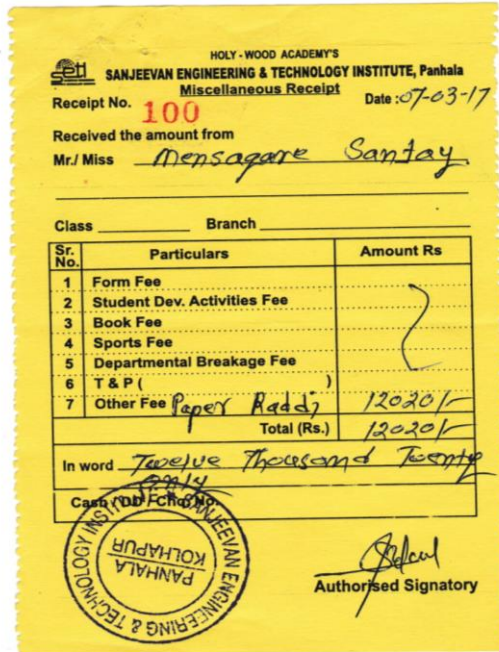 HOLY-WOOD ACADEMY'S
seti SANJEEVAN ENGINEERING & TECHNOLOGY INSTITUTE, Panhala
Miscellaneous Receipt
Receipt No. 100 Date : 07-03-17
Received the amount from
Mr./ Miss Mensagare Sanjay
Class Branch
Sr. No. Particulars Amount Rs
1 Form Fee
2 Student Dev. Activities Fee
3 Book Fee
4 Sports Fee
5 Departmental Breakage Fee
6 T & P ( )
7 Other Fee Paper Raddi 12020/-
Total (Rs.) 12020/-
In word Twelve Thousand Twenty
only
Cash / DD / Chq. No.
SANJEEVAN ENGINEERING & TECHNOLOGY INSTITUTE
PANHALA
KOLHAPUR
Authorised Signatory